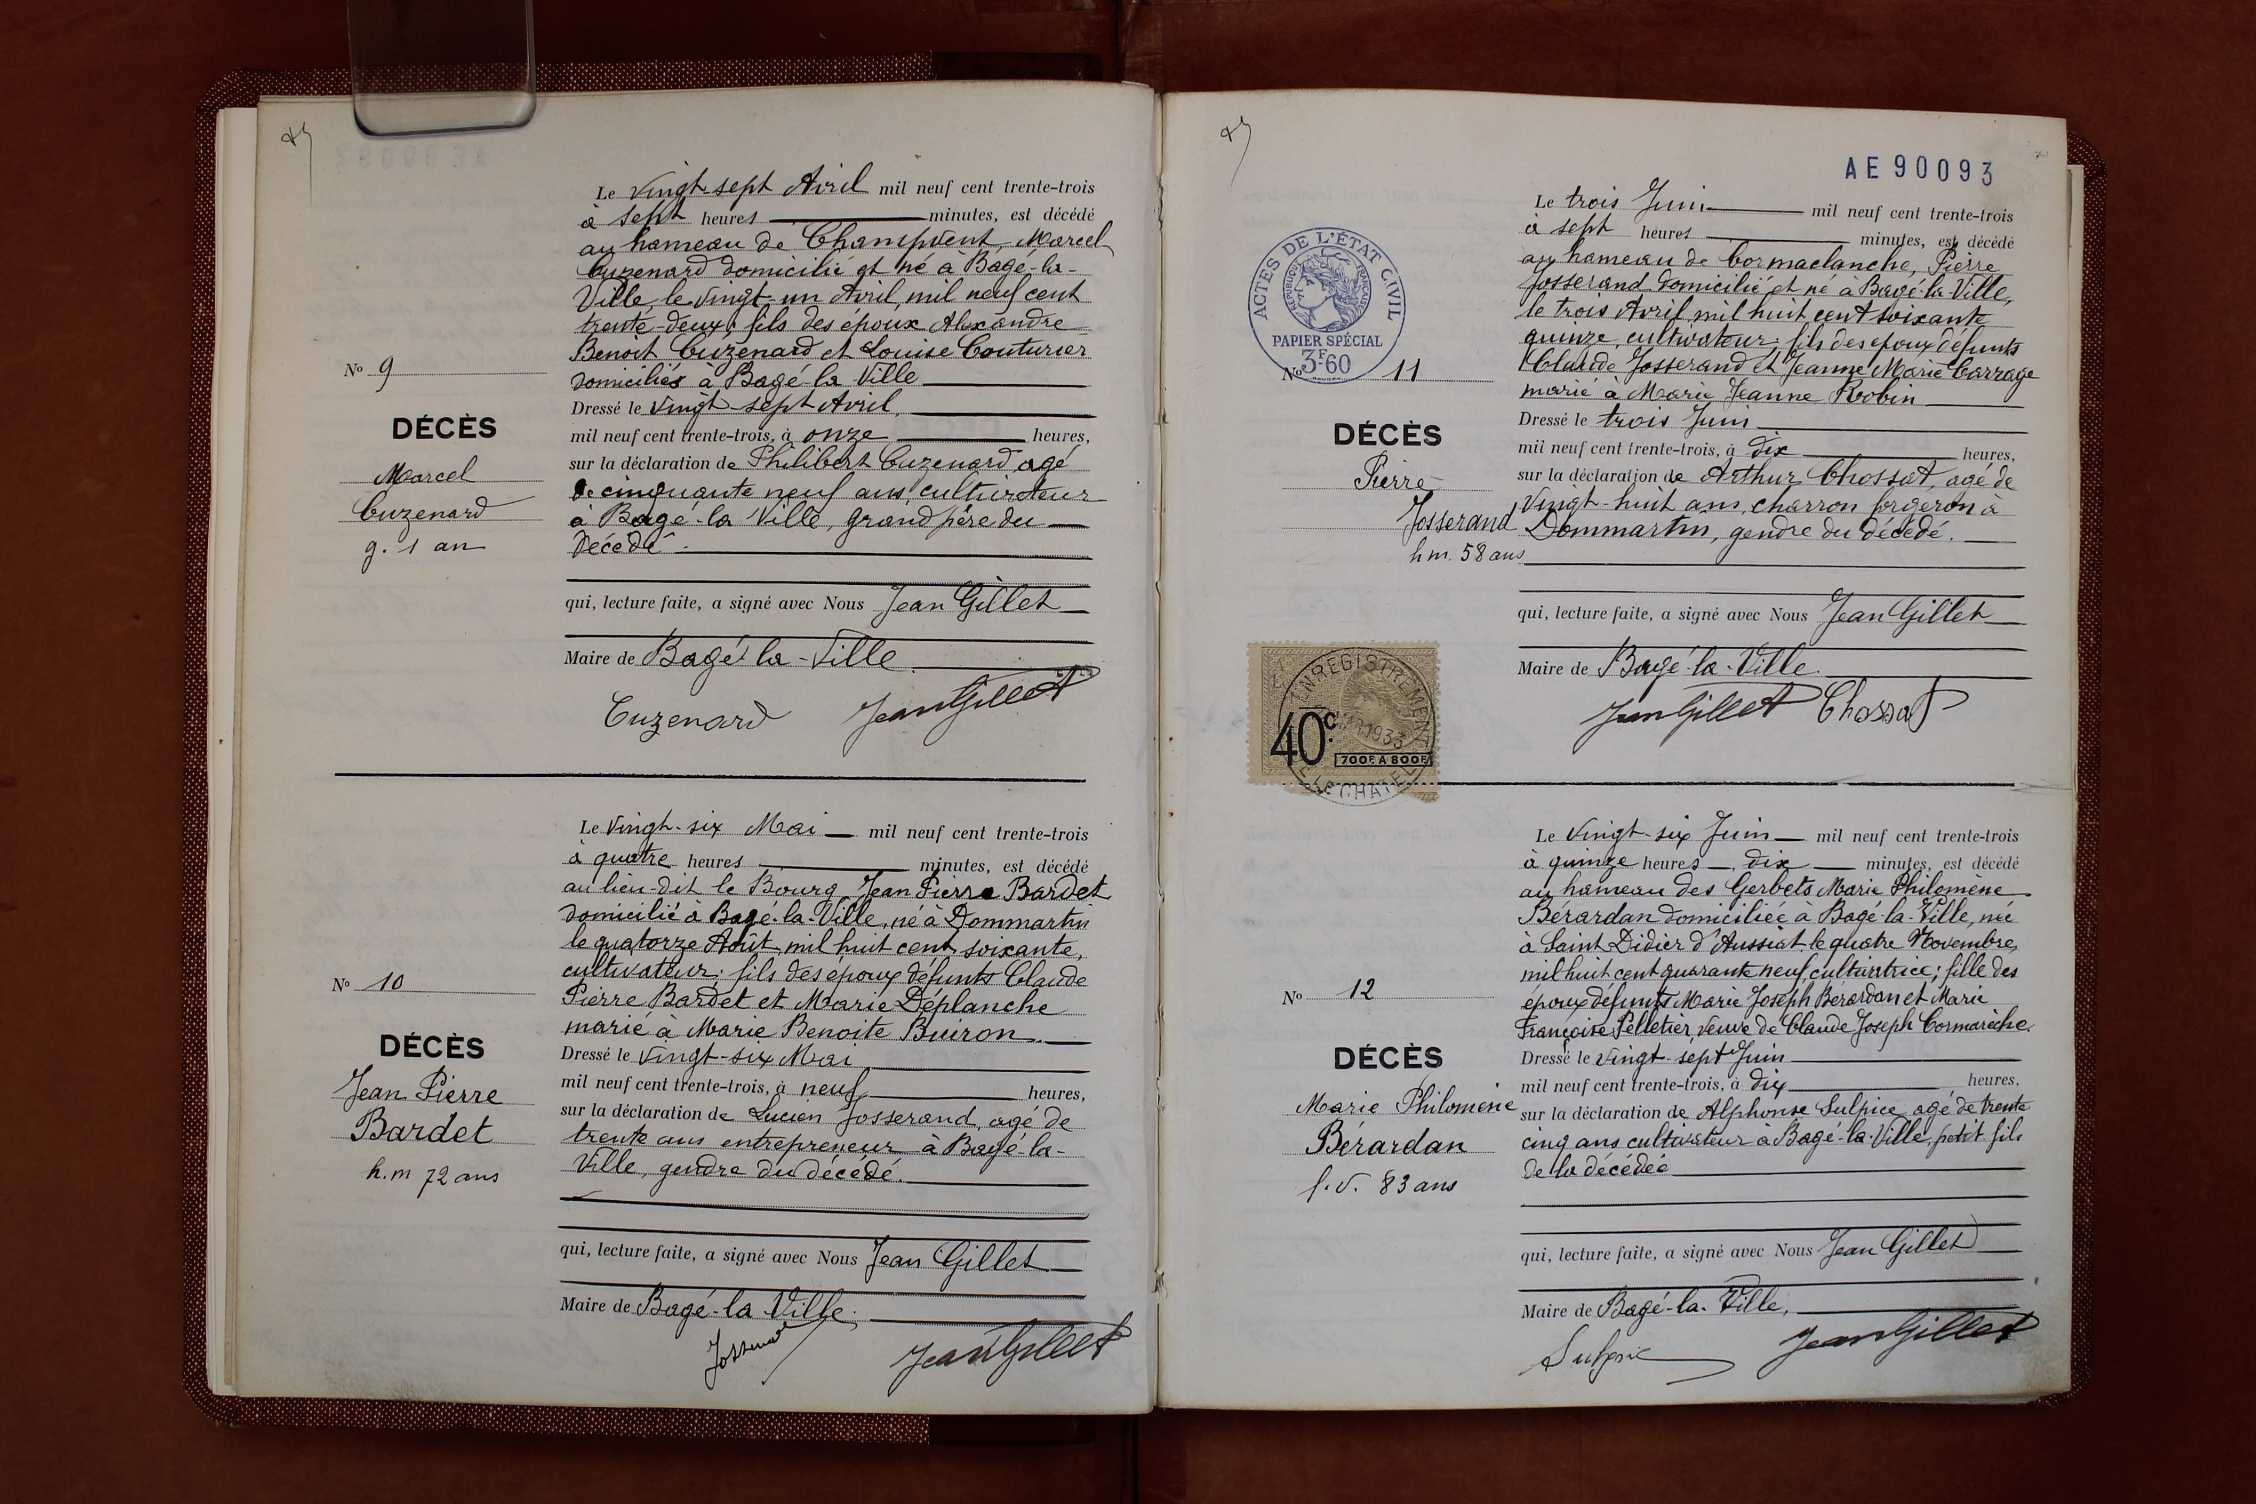 Le vingt-sept Avril mil neuf cent trente-trois
à sept heures minutes, est décédé
au hameau de Champvent, Marcel
Cuzenard domicilié et né à Bagé-la-
Ville, le vingt-un Avril mil neuf cent
trente-deux; fils des époux Alexandre
Benoit Cuzenard et Louise Couturier
domiciliés à Bagé-la Ville
Dressé le vingt-sept Avril,
mil neuf cent trente-trois, à onze heures,
sur la déclaration de Philibert Cuzenard agé
de cinquante neuf ans cultivateur
à Bagé-la Ville, grand père du
décédé.
qui, lecture faite, a signé avec Nous Jean Gillet
Maire de Bagé-la-Ville.
Cuzenard Jean Gillet
No 9
DÉCÈS
Marcel
Cuzenard
g. 1 an
Le vingt-six Mai mil neuf cent trente-trois
à quatre heures minutes, est décédé
au lieu-dit le Bourg, Jean Pierre Bardet
domicilié à Bagé-la-Ville, né à Dommartin
le quatorze Août, mil huit cent soixante,
cultivateur; fils des époux défunts Claude
Pierre Bardet et Marie Déplanche
marié à Marie Benoite Buiron.
Dressé le vingt-six Mai
mil neuf cent trente-trois, à neuf heures,
sur la déclaration de Lucien Josserand, agé de
trente ans entrepreneur à Bagé-la-
Ville, gendre du décédé.
qui, lecture faite, a signé avec Nous Jean Gillet
Maire de Bagé-la-Ville.
Josserand Jean Gillet
No 10
DÉCÈS
Jean Pierre
Bardet
h.m 72 ans
AE 90093
Le trois Juin mil neuf cent trente-trois
à sept heures minutes, est décédé
au hameau de Cormaclanche, Pierre
Josserand domicilié et né à Bagé-la Ville,
le trois Avril mil huit cent soixante
quinze, cultivateur; fils des époux défunts
Claude Josserand et Jeanne Marie Carrage
marié à Marie Jeanne Robin
Dressé le trois Juin
mil neuf cent trente-trois, à dix heures,
sur la déclaration de Arthur Chossat, agé de
vingt-huit ans, charron forgeron à
Dommartin, gendre du décédé.
qui, lecture faite, a signé avec Nous Jean Gillet
Maire de Bagé-la-Ville.
Jean Gillet Chossat
ACTES DE L'ÉTAT CIVIL
RÉPUBLIQUE FRANÇAISE
PAPIER SPÉCIAL
3F-60
No 11
DÉCÈS
Pierre
Josserand
h.m. 58 ans
ENREGISTREMENT
1933
40c.
700F. A 800F
LE CHATEL
Le vingt-six Juin mil neuf cent trente-trois
à quinze heures dix minutes, est décédé
au hameau des Gerbets Marie Philomène
Bérardan domiciliée à Bagé-la-Ville, née
à Saint Didier d'Aussiat le quatre Novembre,
mil huit cent quarante neuf, cultivatrice; fille des
époux défunts Marie Joseph Bérardan et Marie
Françoise Pelletier, veuve de Claude Joseph Cormarèche.
Dressé le vingt-sept Juin
mil neuf cent trente-trois, à dix heures,
sur la déclaration de Alphonse Sulpice, agé de trente
cinq ans cultivateur à Bagé-la-Ville, petit fils
de la décédée
qui, lecture faite, a signé avec Nous Jean Gillet
Maire de Bagé-la-Ville.
Sulpice Jean Gillet
No 12
DÉCÈS
Marie Philomène
Bérardan
f.v. 83 ans